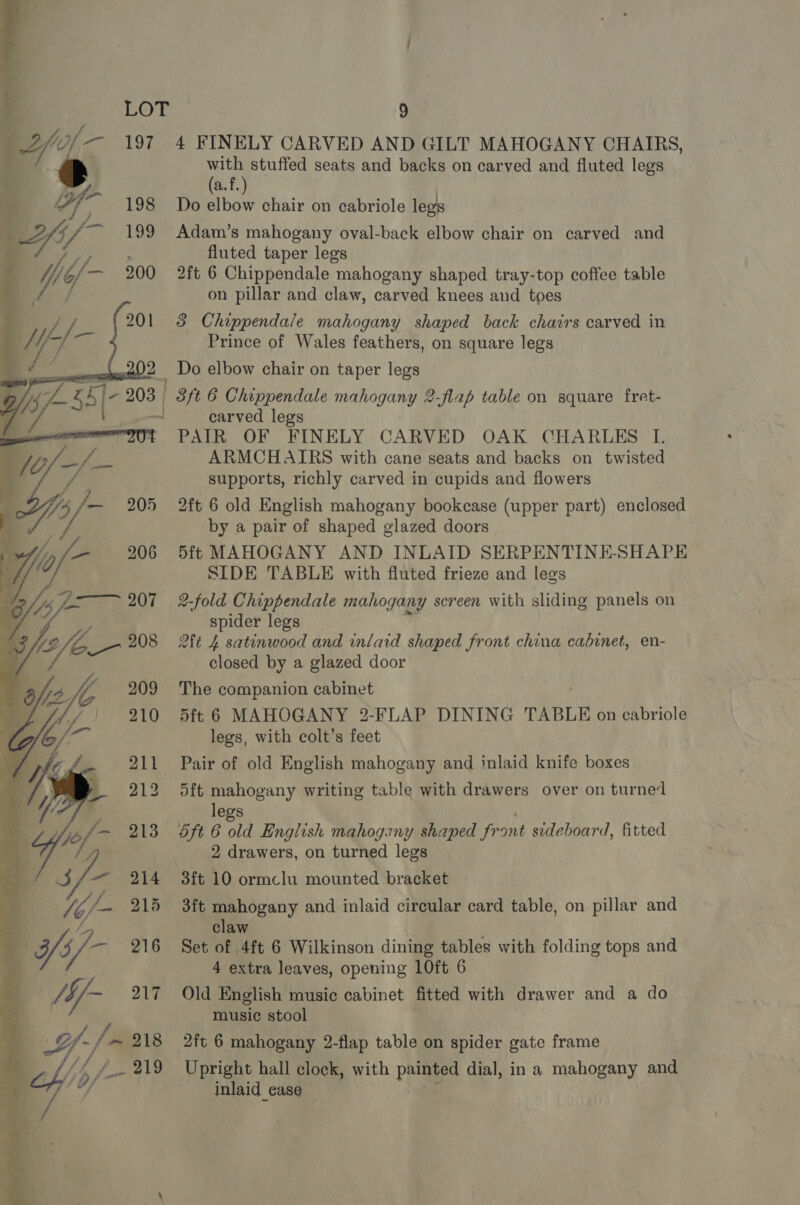 LOT 9
2/0/- 197 4 FINELY CARVED AND GILT MAHOGANY CHAIRS,
with stuffed seats and backs on carved and fluted legs
(a.f.)
198 Do elbow chair on cabriole legs
199 Adam's mahogany oval-back elbow chair on carved and
fluted taper legs
200 2ft 6 Chippendale mahogany shaped tray-top coffee table
on pillar and claw, carved knees and toes
201 3 Chippendale mahogany shaped back chairs carved in
Prince of Wales feathers, on square legs
202 Do elbow chair on taper legs
203 3ft 6 Chippendale mahogany 2-flap table on square fret-
carved legs
204 PAIR OF FINELY CARVED OAK CHARLES I.
10/-/- ARMCHAIRS with cane seats and backs on twisted
supports, richly carved in cupids and flowers
205 2ft 6 old English mahogany bookcase (upper part) enclosed
by a pair of shaped glazed doors
206 5ft MAHOGANY AND INLAID SERPENTINE-SHAPE
SIDE TABLE with fluted frieze and legs
207 2-fold Chippendale mahogany screen with sliding panels on
spider legs
3/12/6 208 2ft 4 satinwood and inlaid shaped front china cabinet, en-
closed by a glazed door
3/12/6 209 The companion cabinet
6/6/- 210 5ft 6 MAHOGANY 2-FLAP DINING TABLE on cabriole
legs, with colt's feet
211 Pair of old English mahogany and inlaid knife boxes
212 5ft mahogany writing table with drawers over on turned
legs
4/10/- 213 5ft 6 old English mahogany shaped front sideboard, fitted
2 drawers, on turned legs
214 3ft 10 ormclu mounted bracket
215 3ft mahogany and inlaid circular card table, on pillar and
claw
216 Set of 4ft 6 Wilkinson dining tables with folding tops and
4 extra leaves, opening 10ft 6
217 Old English music cabinet fitted with drawer and a do
music stool
218 2ft 6 mahogany 2-flap table on spider gate frame
219 Upright hall clock, with painted dial, in a mahogany and
inlaid case